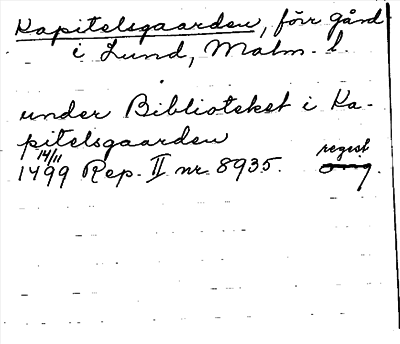 Kapitelsgaarden, förr gård
i Lund, Malm. l.
under Biblioteket i Ka-
pitelsgaarden
14/11
1499 Rep. II nr. 8935. regist
orig.